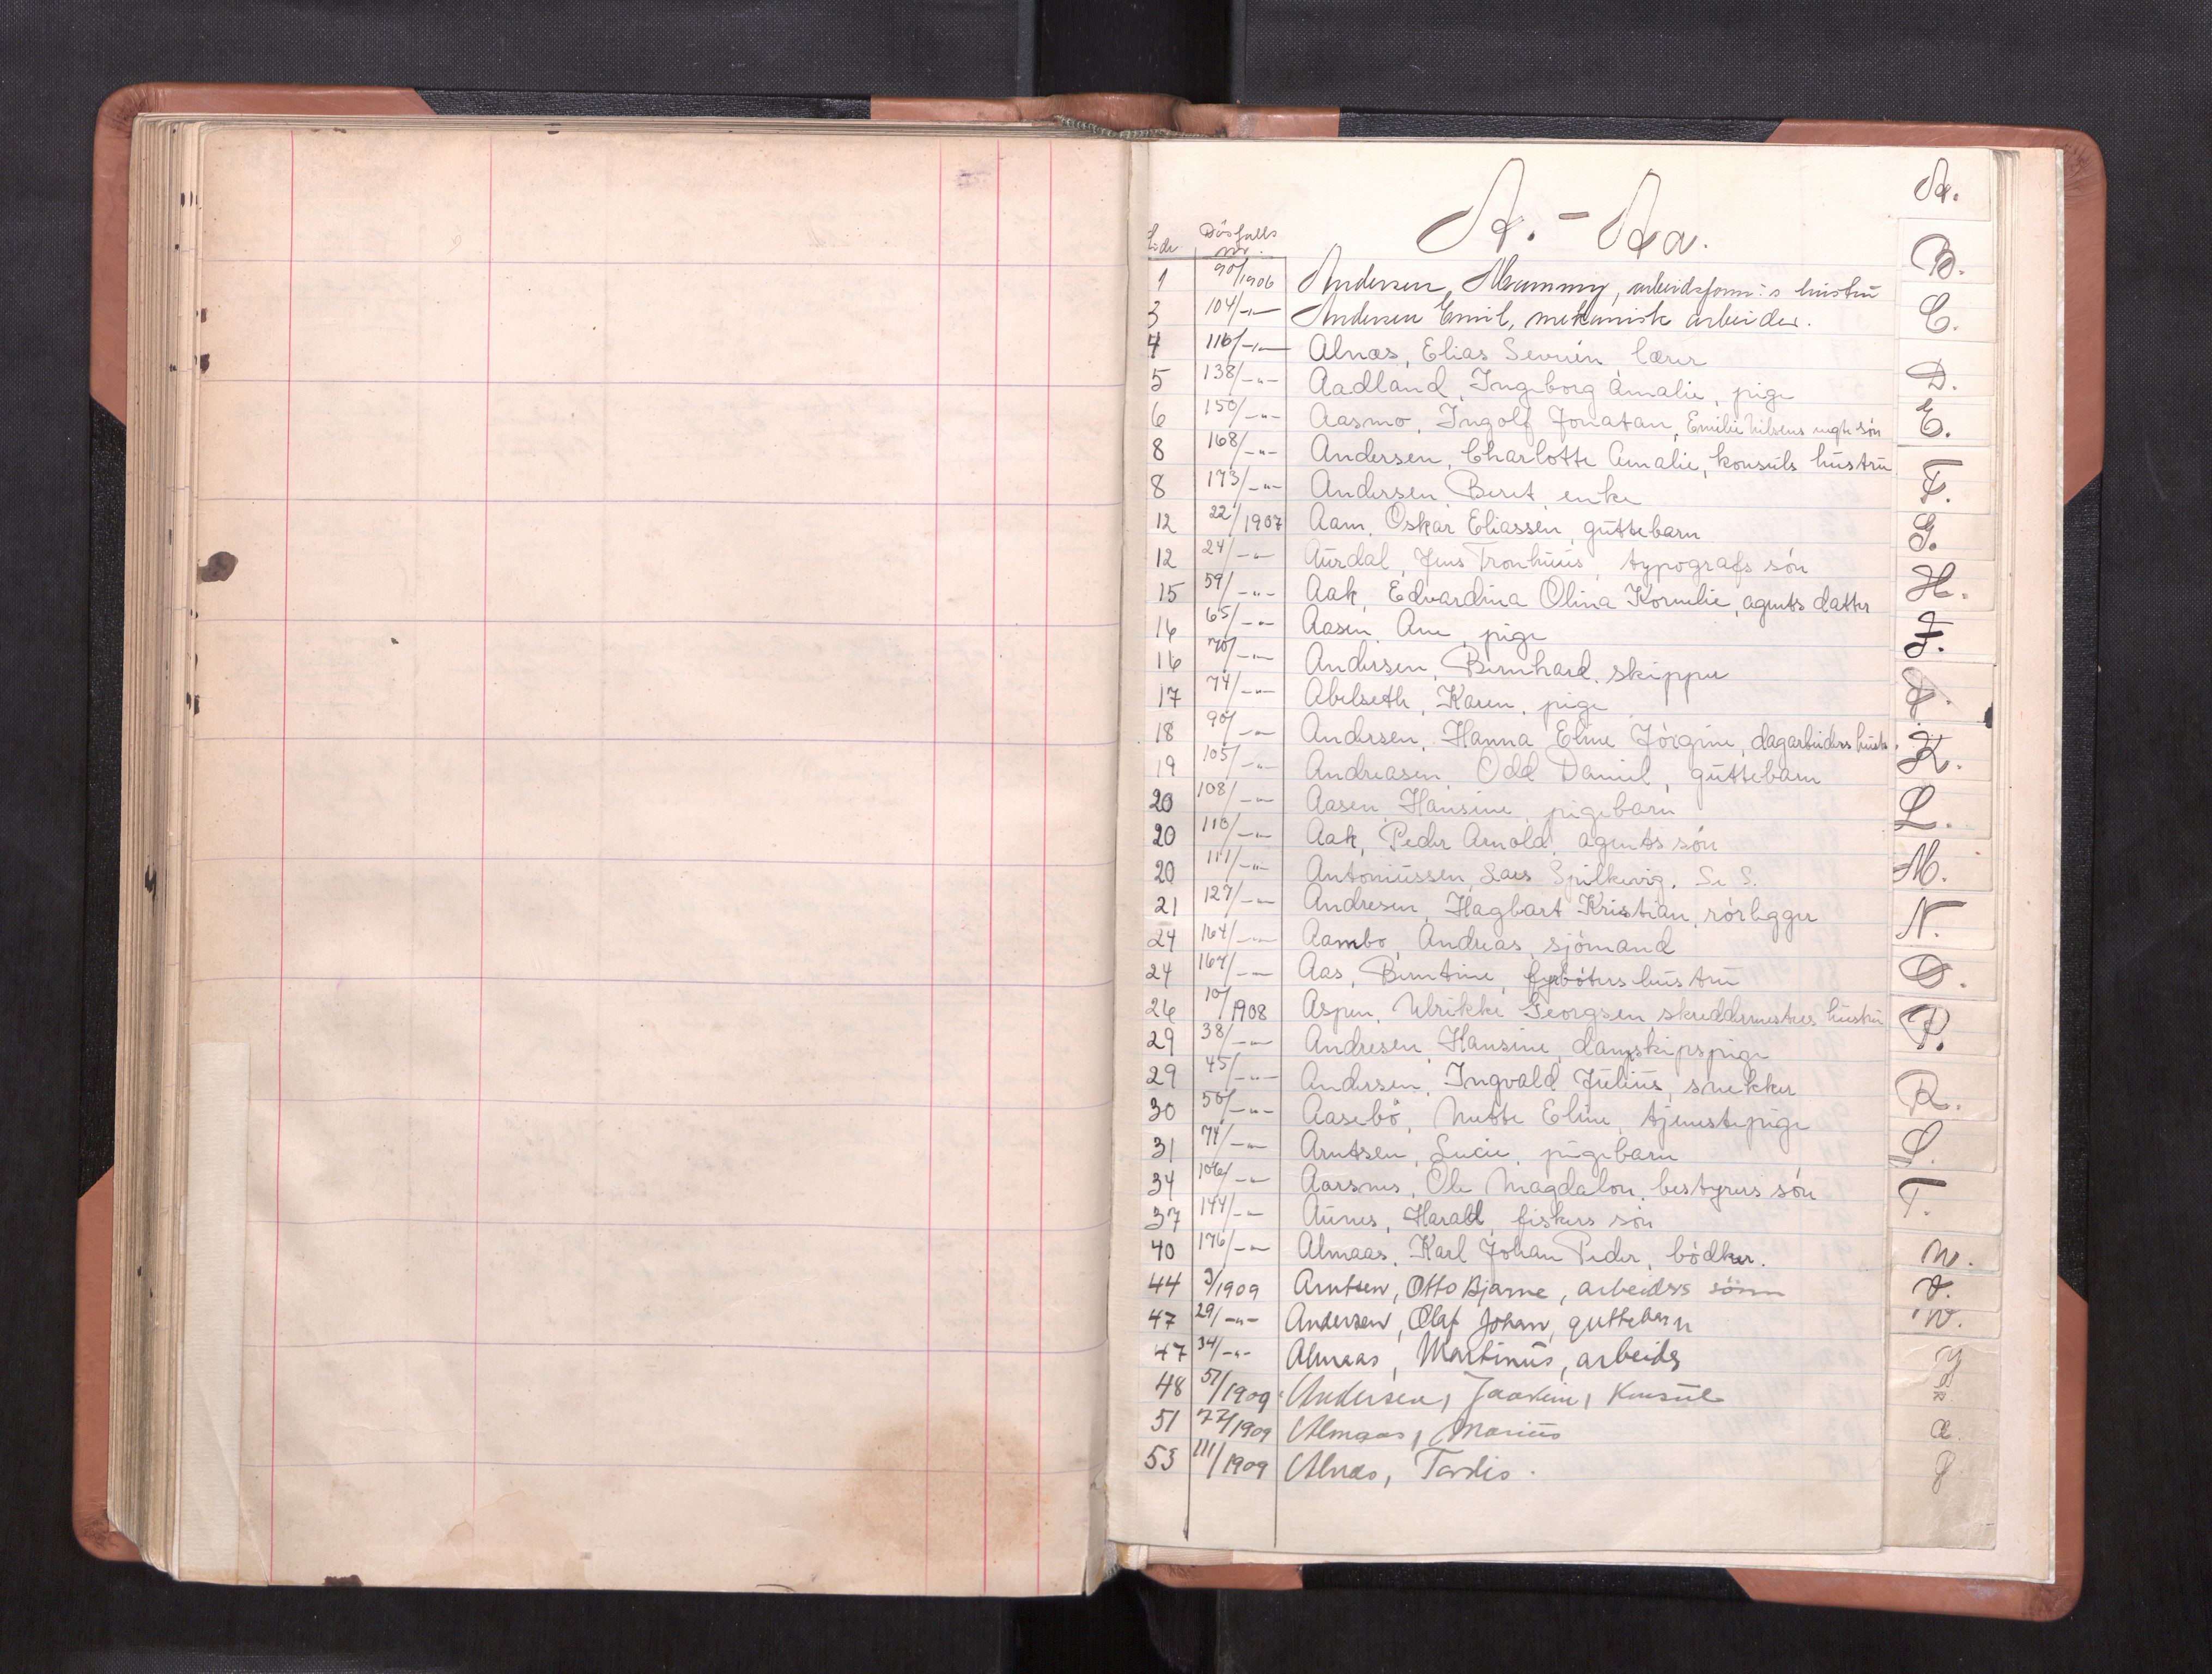 A. - Aa.
Side Dösfalls nr.
1 90/1906 Andersen, Mammy, arbeidsform:s hustru
3 104/-"- Andersen Emil, mekanisk arbeider.
4 116/-"- Alnæs, Elias Severin lærer
5 138/-"- Aadland, Ingeborg Amalie, pige
6 150/-"- Aasmo, Ingolf Jonatan, Emilie Nilsens uegte sön
8 168/-"- Andersen, Charlotte Amalie, konsuls hustru
8 173/-"- Andersen Beret enke
12 22/1907 Aam, Oskar Eliassen, guttebarn
12 24/-"- Aurdal, Jens Tronhuus, typografs sön
15 59/-"- Aak, Edvardina Olina Kornelie, agents datter
16 65/-"- Aasen, Ane, pige
16 70/-"- Andersen, Bernhard, skipper
17 74/-"- Abelseth, Karen, pige
18 90/-"- Andersen, Hanna Eline Jörgine, dagarbeiders hustr.
19 105/-"- Andreasen, Odd Daniel, guttebarn
20 108/-"- Aasen, Hansine, pigebarn
20 110/-"- Aak, Peder Arnold, agents sön
20 111/-"- Antoniussen, Lars Spilkevig. Se S.
21 127/-"- Andresen, Hagbart Kristian, rörlegger
24 164/-"- Aambo, Andreas, sjömand
24 167/-"- Aas, Berntine, fyrböters hustru
26 10/1908 Aspen, Ulrikke Georgsen skreddermesters hustru
29 38/-"- Andresen, Hansine, dampskipspige
29 45/-"- Andersen, Ingvald Julius, snekker
30 50/-"- Aasebö, Nette Eline, tjenestepige
31 74/-"- Arntsen, Lucie, pigebarn
34 106/-"- Aarsnes, Ole Magdalon, bestyrers sön
37 144/-"- Aunes, Harald, fiskers sön
40 176/-"- Almaas, Karl Johan Peder, bödker.
44 3/1909 Arntsen, Otto Bjarne, arbeiders sönn
47 29/-"- Andersen, Olaf Johan, guttebarn
47 34/-"- Almaas, Martinus, arbeider
48 51/1909 Andersen, Joakim, Konsul
51 77/1909 Almaas, Marius
53 111/1909 Alnæs, Tordis.
A.
B.
C.
D.
E.
F.
G.
H.
I.
J.
K.
L.
M.
N.
O.
P.
R.
S.
T.
U.
V.
W.
Y
Æ.
Ø